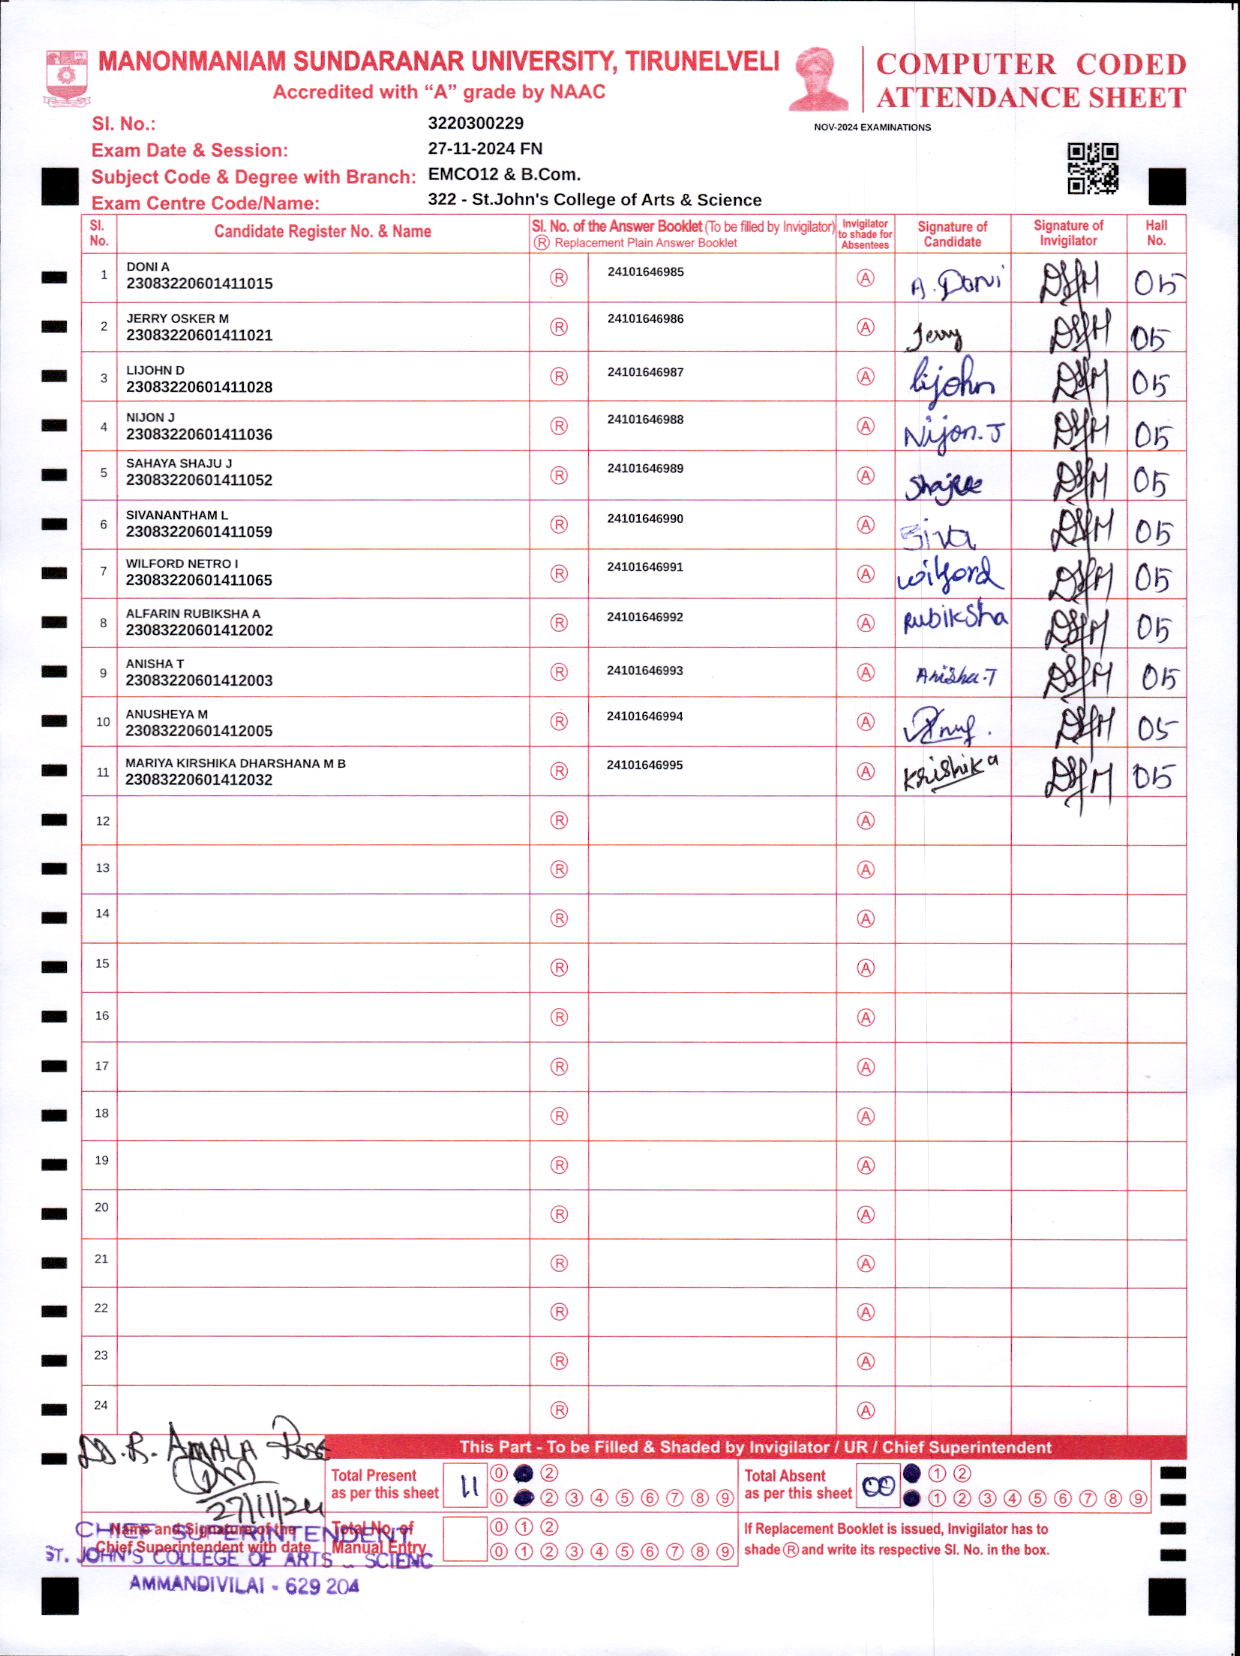 MANONMANIAM SUNDARANAR UNIVERSITY, TIRUNELVELI
Accredited with “A” grade by NAAC
COMPUTER CODED
ATTENDANCE SHEET
NOV-2024 EXAMINATIONS
Sl. No.: 3220300229
Exam Date & Session: 27-11-2024 FN
Subject Code & Degree with Branch: EMCO12 & B.Com.
Exam Centre Code/Name: 322 - St.John's College of Arts & Science
Sl. No. Candidate Register No. & Name Sl. No. of the Answer Booklet (To be filled by Invigilator) Ⓡ Replacement Plain Answer Booklet Invigilator to shade for Absentees Signature of Candidate Signature of Invigilator Hall No.
1 DONI A 23083220601411015 Ⓡ 24101646985 Ⓐ A. Doni 05
2 JERRY OSKER M 23083220601411021 Ⓡ 24101646986 Ⓐ Jerry 05
3 LIJOHN D 23083220601411028 Ⓡ 24101646987 Ⓐ Lijohn 05
4 NIJON J 23083220601411036 Ⓡ 24101646988 Ⓐ Nijon.J 05
5 SAHAYA SHAJU J 23083220601411052 Ⓡ 24101646989 Ⓐ 05
6 SIVANANTHAM L 23083220601411059 Ⓡ 24101646990 Ⓐ Siva 05
7 WILFORD NETRO I 23083220601411065 Ⓡ 24101646991 Ⓐ Wilford 05
8 ALFARIN RUBIKSHA A 23083220601412002 Ⓡ 24101646992 Ⓐ Rubiksha 05
9 ANISHA T 23083220601412003 Ⓡ 24101646993 Ⓐ Anisha.T 05
10 ANUSHEYA M 23083220601412005 Ⓡ 24101646994 Ⓐ 05
11 MARIYA KIRSHIKA DHARSHANA M B 23083220601412032 Ⓡ 24101646995 Ⓐ Krishika 05
12 Ⓡ Ⓐ
13 Ⓡ Ⓐ
14 Ⓡ Ⓐ
15 Ⓡ Ⓐ
16 Ⓡ Ⓐ
17 Ⓡ Ⓐ
18 Ⓡ Ⓐ
19 Ⓡ Ⓐ
20 Ⓡ Ⓐ
21 Ⓡ Ⓐ
22 Ⓡ Ⓐ
23 Ⓡ Ⓐ
24 Ⓡ Ⓐ
Dr. R. AMALA Rose
27/11/24
This Part - To be Filled & Shaded by Invigilator / UR / Chief Superintendent
Total Present as per this sheet 11 ⓪ ② ⓪ ② ③ ④ ⑤ ⑥ ⑦ ⑧ ⑨
Total Absent as per this sheet 00 ① ② ① ② ③ ④ ⑤ ⑥ ⑦ ⑧ ⑨
Name and Signature of the Chief Superintendent with date
Total No. of Manual Entry ⓪ ① ② ⓪ ① ② ③ ④ ⑤ ⑥ ⑦ ⑧ ⑨
If Replacement Booklet is issued, Invigilator has to
shade Ⓡ and write its respective Sl. No. in the box.
CHIEF SUPERINTENDENT
ST. JOHN'S COLLEGE OF ARTS - SCIENC
AMMANDIVILAI - 629 204